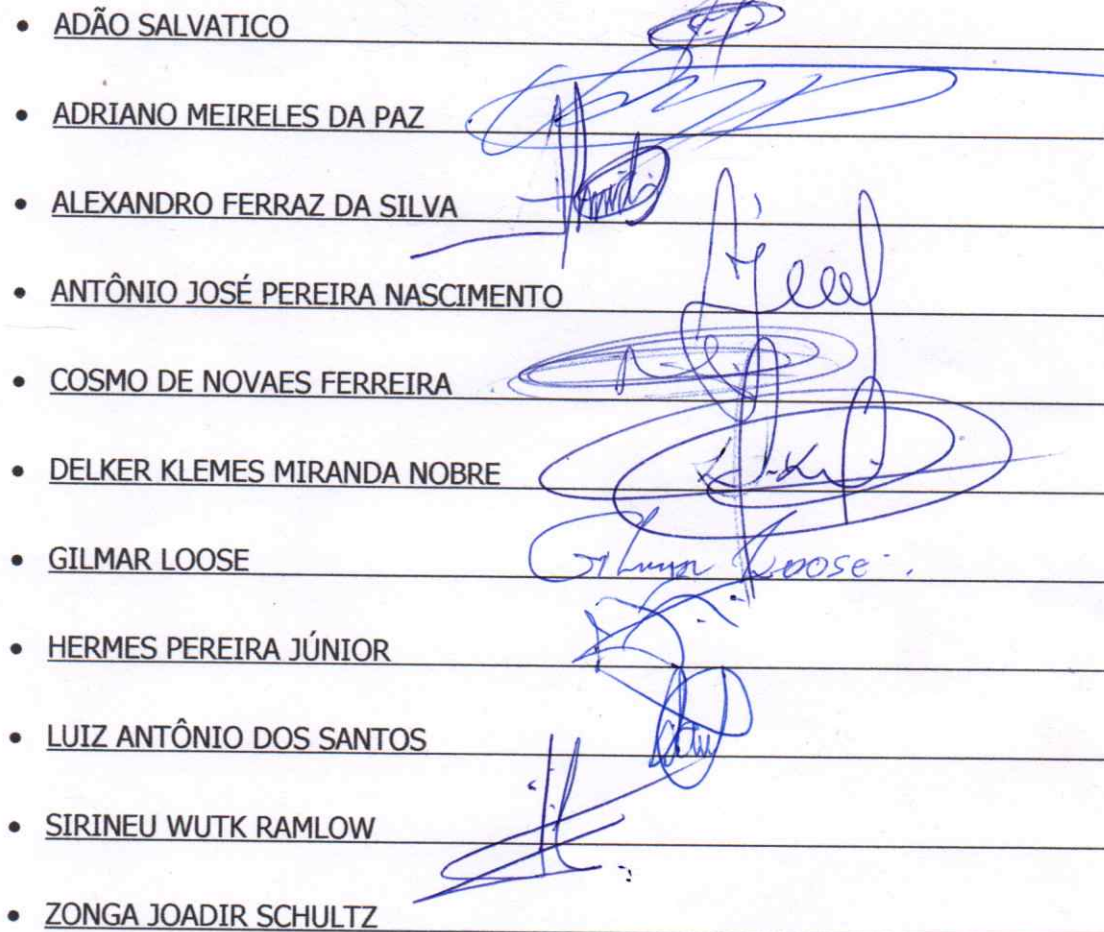 • ADÃO SALVATICO
• ADRIANO MEIRELES DA PAZ
• ALEXANDRO FERRAZ DA SILVA
• ANTÔNIO JOSÉ PEREIRA NASCIMENTO
• COSMO DE NOVAES FERREIRA
• DELKER KLEMES MIRANDA NOBRE
• GILMAR LOOSE Gilmar Loose.
• HERMES PEREIRA JÚNIOR
• LUIZ ANTÔNIO DOS SANTOS
• SIRINEU WUTK RAMLOW
• ZONGA JOADIR SCHULTZ